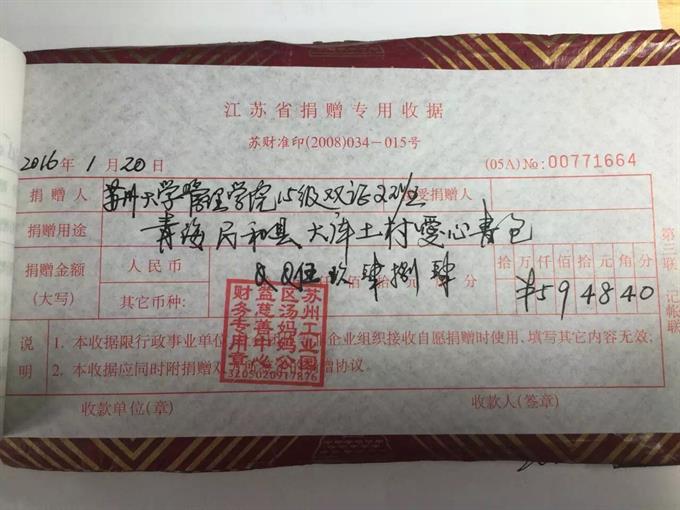 江苏省捐赠专用收据
苏财准印(2008)034-015号
2016年1月20日 (05A) No:00771664
捐赠人 苏州大学管理学院15级双证 班 受捐赠人
捐赠用途 青海民和县大库土村愛心書包
捐赠金额 人民币 伍玖肆捌肆 拾万仟佰拾元角分
(大写) 其它币种: 佰拾元 ¥594840
说明 1. 本收据限行政事业单位 企业组织接收自愿捐赠时使用,填写其它内容无效;
2. 本收据应同时附捐赠双 赠协议。
收款单位(章) 收款人(签章)
第三联 记帐联
苏州工业园
区汤妈妈公
益慈善中心
财务专用章
3205020917876